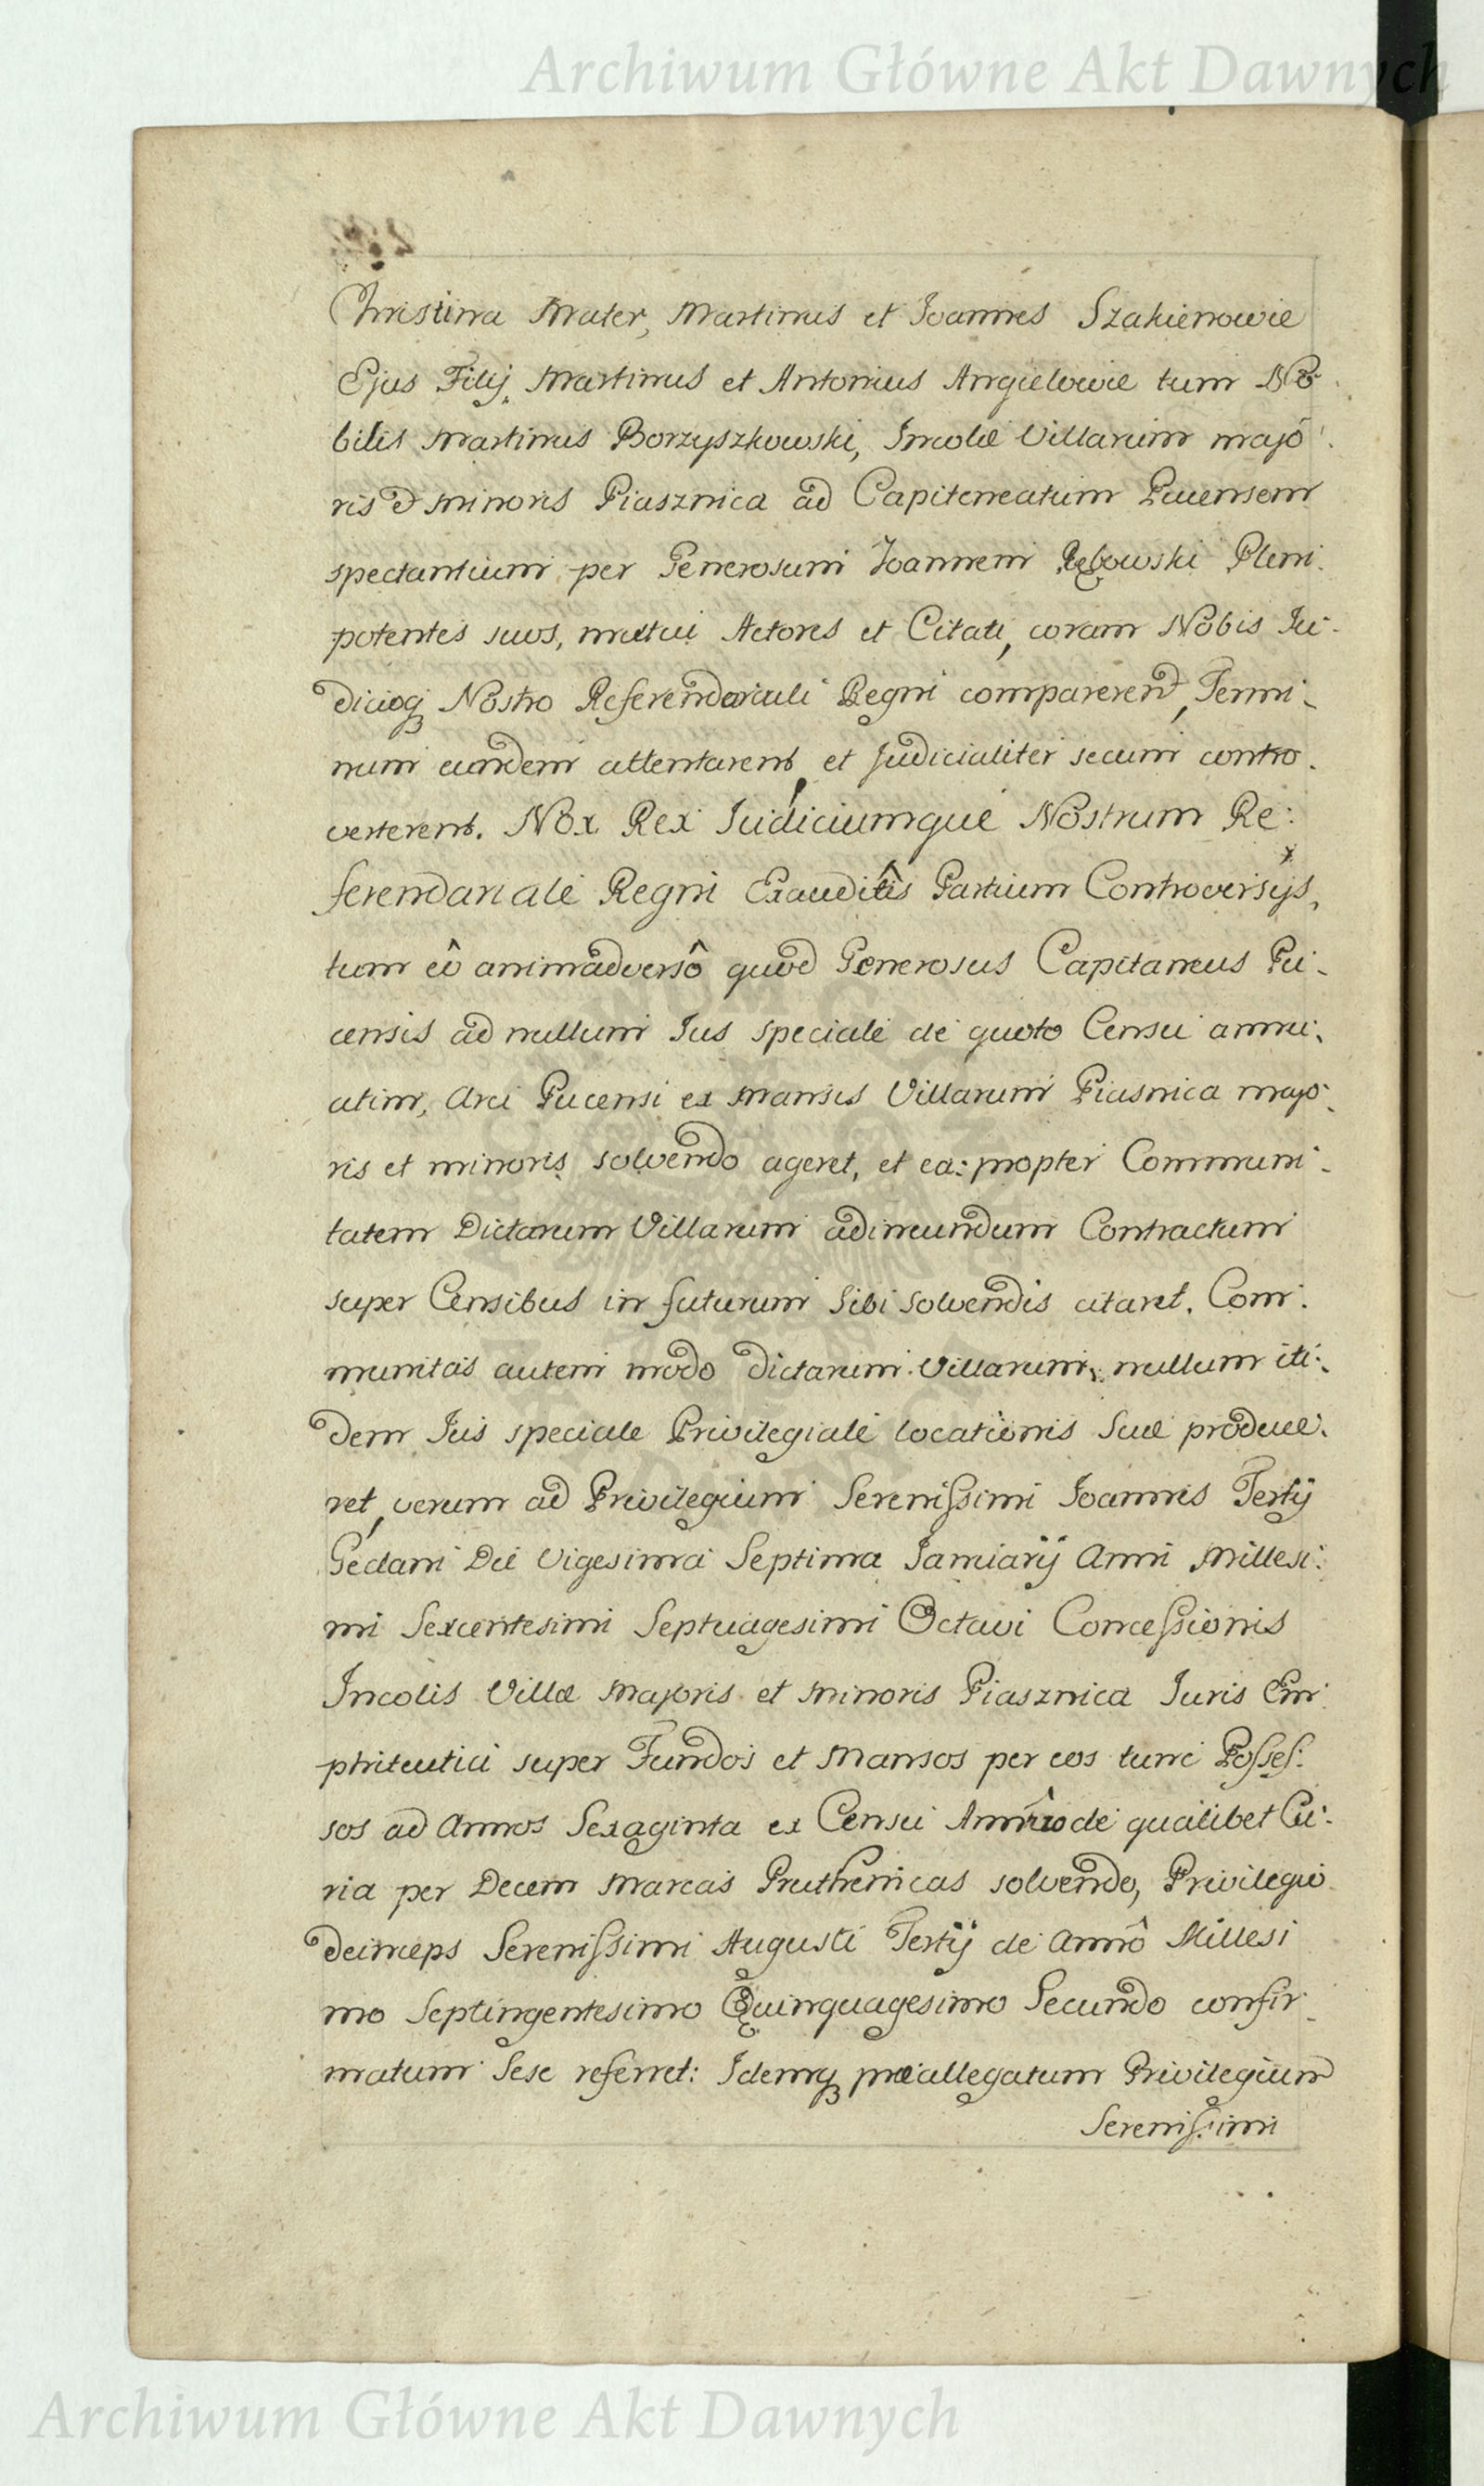 Archiwum Główne Akt Dawnych
Christina Mater, Martinus et Joannes Szakienowie
Ejus Filij, Martinus et Antonius Angielowie tum No-
bilis Martinus Borzyszkowski, Incolæ Villarum majo-
ris & minoris Piasznica ad Capiteneatum Pucensem
spectantium per Generosum Joannem Rębowski Pleni-
potentes suos, mutui Actores et Citati, coram Nobis Ju-
dicioq Nostro Referendariali Regni comparerent, Termi-
num eundem attentarent, et Judicialiter secum contro-
verterent. Nox Rex Judiciumque Nostrum Re-
ferendariale Regni Exauditîs Partium Controversijs,
tum eô animadversô quod Generosus Capitaneus Pu-
censis ad nullum Jus speciale de quoto Censu annu-
atim, Arci Pucensi ex Mansis Villarum Piasnica majo-
ris et minoris solvendo ageret, et ea: propter Communi-
tatem Dictarum Villarum adineundum Contractum
super Censibus in futurum sibi solvendis citaret. Com-
munitas autem modo dictarum Villarum, nullum iti-
dem Jus speciale Privilegiale locationis suæ produce-
ret, verum ad Privilegium Serenissimi Joannis Tertij
Gedani Die Vigesima Septima Januarij Anni Millesi-
mi Sexcentesimi Septuagesimi Octavi Concessionis
Incolis Villæ Majoris et Minoris Piasznica Juris Em-
phiteutici super Fundos et Mansos per eos tunc Posses-
sos ad Annos Sexaginta ex Censu Annûo de qualibet Cu-
ria per Decem Marcas Pruthenicas solvendo, Privilegio
deinceps Serenissimi Augusti Tertij de Annô Millesi
mo Septingentesimo Quinquagesimo Secundo confir-
matum sese referret: Idemq præallegatum Privilegium
Serenissimi
Archiwum Główne Akt Dawnych